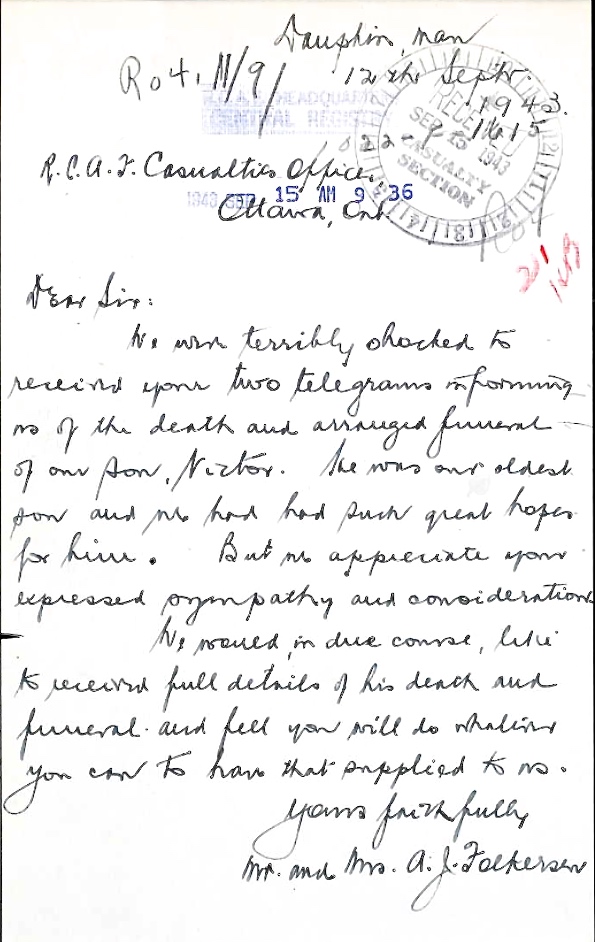 Dauphin, Man
Ro4. 11/9/ 12th Septr.
1943.
HEADQUARTERS
CENTRAL REGISTRY
RECEIVED
SEP 15 1943
CASUALTY
SECTION
R.C.A.F. Casualties Office,
1943 SEP 15 AM 9 36
Ottawa, Ont.
Dear Sir:
We were terribly shocked to
received your two telegrams informing
us of the death and arranged funeral
of our son, Victor. He was our oldest
son and we had had such great hopes
for him. But we appreciate your
expressed sympathy and consideration.
We would, in due course, like
to received full details of his death and
funeral and feel you will do whatever
you can to have that supplied to us.
Yours faithfully
Mr. and Mrs. A. J. Folkersen